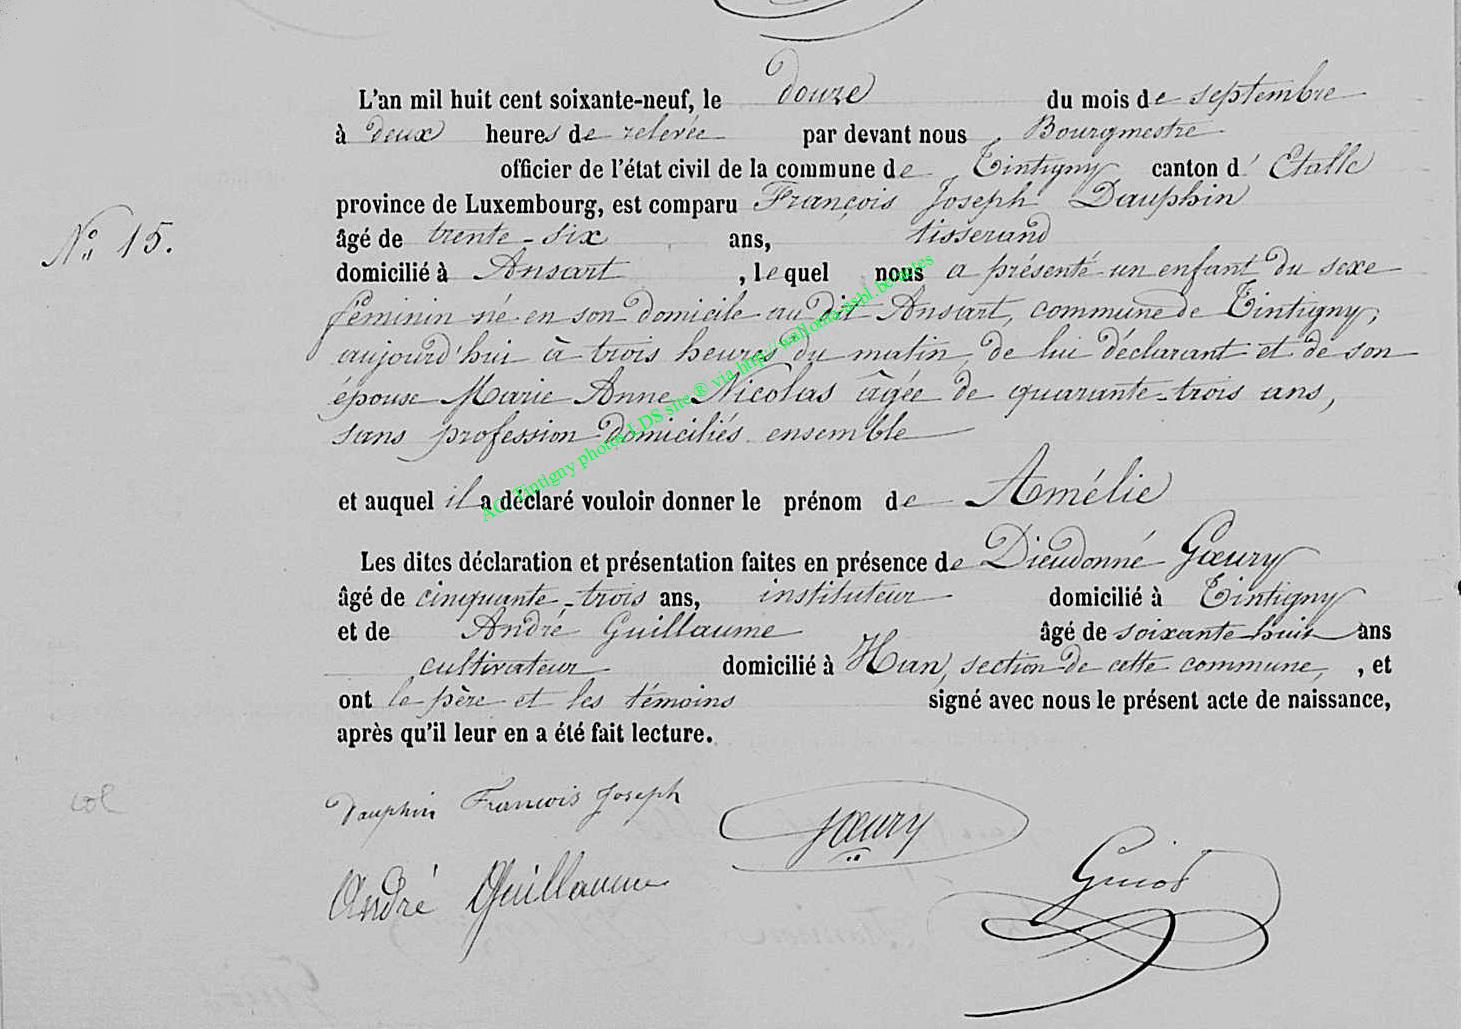 L'an mil huit cent soixante-neuf, le douze du mois de septembre
à deux heures de relevée par devant nous Bourgmestre
officier de l'état civil de la commune de Tintigny canton d' Etalle
province de Luxembourg, est comparu François Joseph Dauphin
N° 15.
âgé de trente-six ans, tisserand
domicilié à Ansart, lequel nous a présenté un enfant du sexe
féminin né en son domicile au dit Ansart, commune de Tintigny,
aujourd'hui à trois heures du matin, de lui déclarant et de son
épouse Marie Anne Nicolas âgée de quarante-trois ans,
sans profession domiciliés ensemble
et auquel il a déclaré vouloir donner le prénom de Amélie
Les dites déclaration et présentation faites en présence de Dieudonné Gœury
âgé de cinquante-trois ans, instituteur domicilié à Tintigny
et de André Guillaume âgé de soixante-huit ans
cultivateur domicilié à Han, section de cette commune, , et
ont le père et les témoins signé avec nous le présent acte de naissance,
après qu'il leur en a été fait lecture.
col
Dauphin François Joseph
Gœury
André Guillaume
Guiot
AC Tintigny photos LDS site ® via http://wallonia-asbl.be/notes